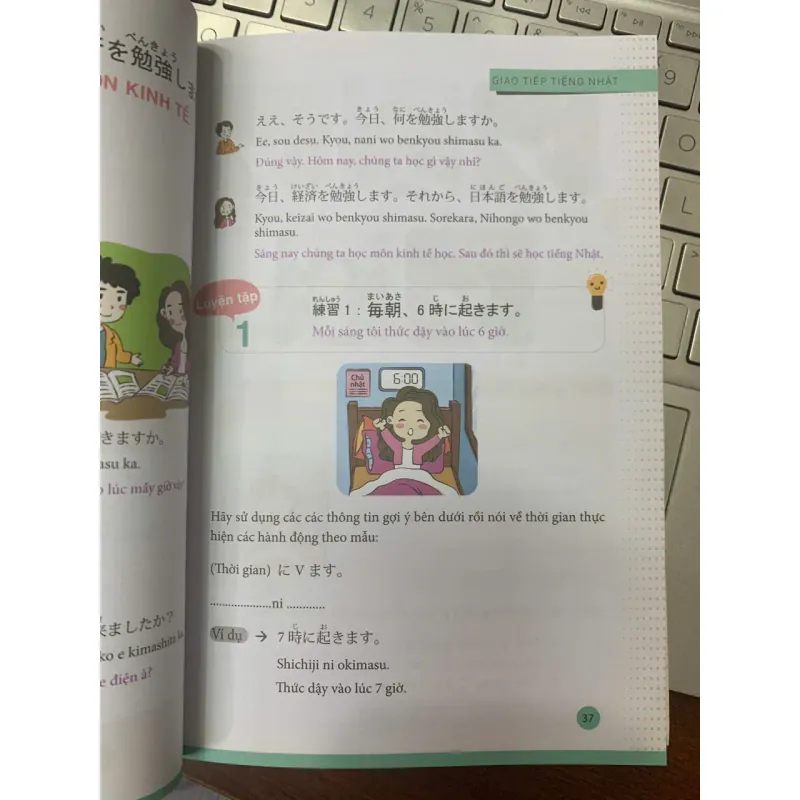 べんきょう
を勉強しま
ÔN KINH TẾ
きますか。
asu ka.
lúc mấy giờ vậy?
ましたか?
ko e kimashita ka
e điện à?
GIAO TIẾP TIẾNG NHẬT
きょう なに べんきょう
ええ、そうです。今日、何を勉強しますか。
Ee, sou desu. Kyou, nani wo benkyou shimasu ka.
Đúng vậy. Hôm nay, chúng ta học gì vậy nhỉ?
きょう けいざい べんきょう にほんご べんきょう
今日、経済を勉強します。それから、日本語を勉強します。
Kyou, keizai wo benkyou shimasu. Sorekara, Nihongo wo benkyou
shimasu.
Sáng nay chúng ta học môn kinh tế học. Sau đó thì sẽ học tiếng Nhật.
Luyện tập
1
れんしゅう まいあさ じ お
練習 1 : 毎朝、6 時に起きます。
Mỗi sáng tôi thức dậy vào lúc 6 giờ.
Chủ
nhật
6:00
Hãy sử dụng các các thông tin gợi ý bên dưới rồi nói về thời gian thực
hiện các hành động theo mẫu:
(Thời gian) に V ます。
.....................ni ............
じ お
Ví dụ → 7 時に起きます。
Shichiji ni okimasu.
Thức dậy vào lúc 7 giờ.
37